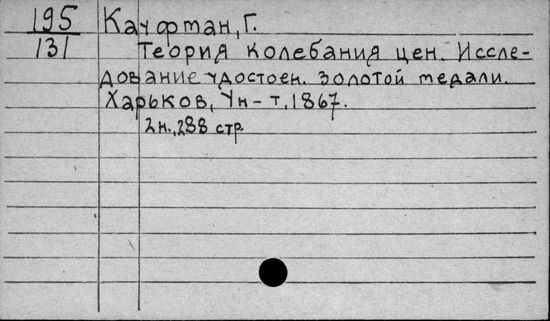 195 Кауфман, Г.
131 Теория колебания цен. Иссле-
дование удостоен. золотой медали.
Харьков, Ун-т, 1867.
2н., 288 стр.